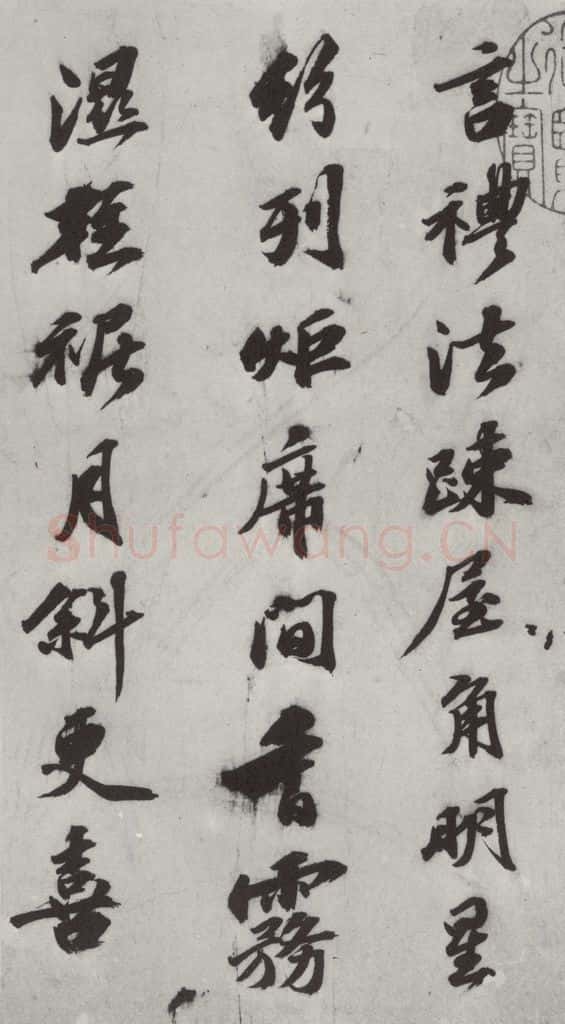 言禮法疎屋角明星
紛列炬席間香霧
濕輕裾月斜更喜
之寶
Shufawang.CN